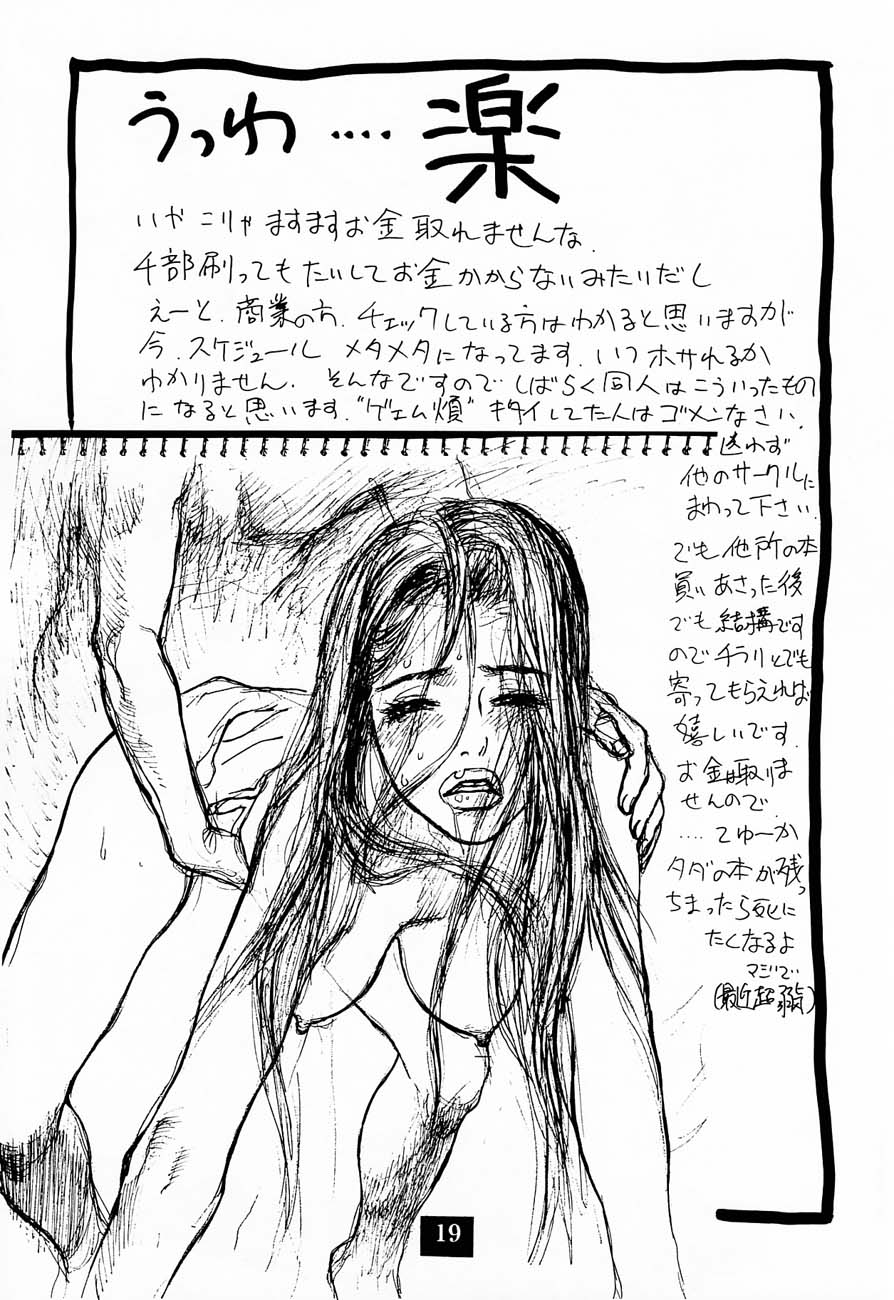 うっわ・・・・楽
いやこりゃますますお金取れませんな.
千部刷ってもたいしてお金かからないみたいだし
えーと、商業の方、チェックしている方はわかると思いますが
今、スケジュール メタメタになってます.いつホサれるか
わかりません. そんなですのでしばらく同人はこういったもの
になると思います."ゲェム煩" キタイしてた人はゴメンなさい.
迷わず
他のサークルに
まわって下さい.
でも他所の本
買いあさった後
でも結構です
のでチラリとでも
寄ってもらえれば
嬉しいです.
お金は取りま
せんので.
・・・・てゆーか
タダの本が残っ
ちまったら死に
たくなるよ
マジで
(最近超弱気)
19